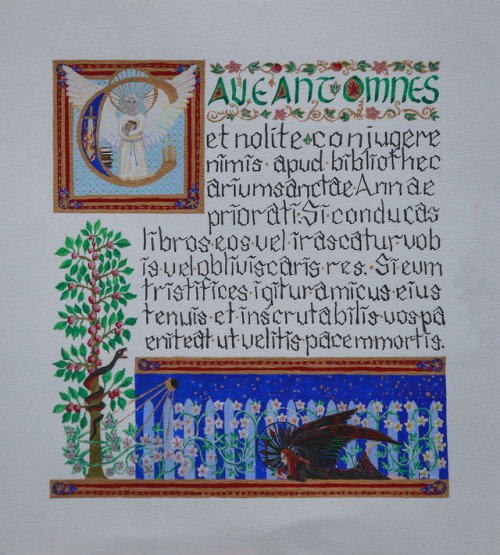 CAVEANT OMNES
et nolite conjugere
nimis apud bibliothec
arium sanctae Annae
priorati. Si conducas
libros eos vel irascatur vob
is vel obliviscaris res. Si eum
tristifices igitur amicus eius
tenuis et inscrutabilis vos pa
eniteat ut velitis pacem mortis.